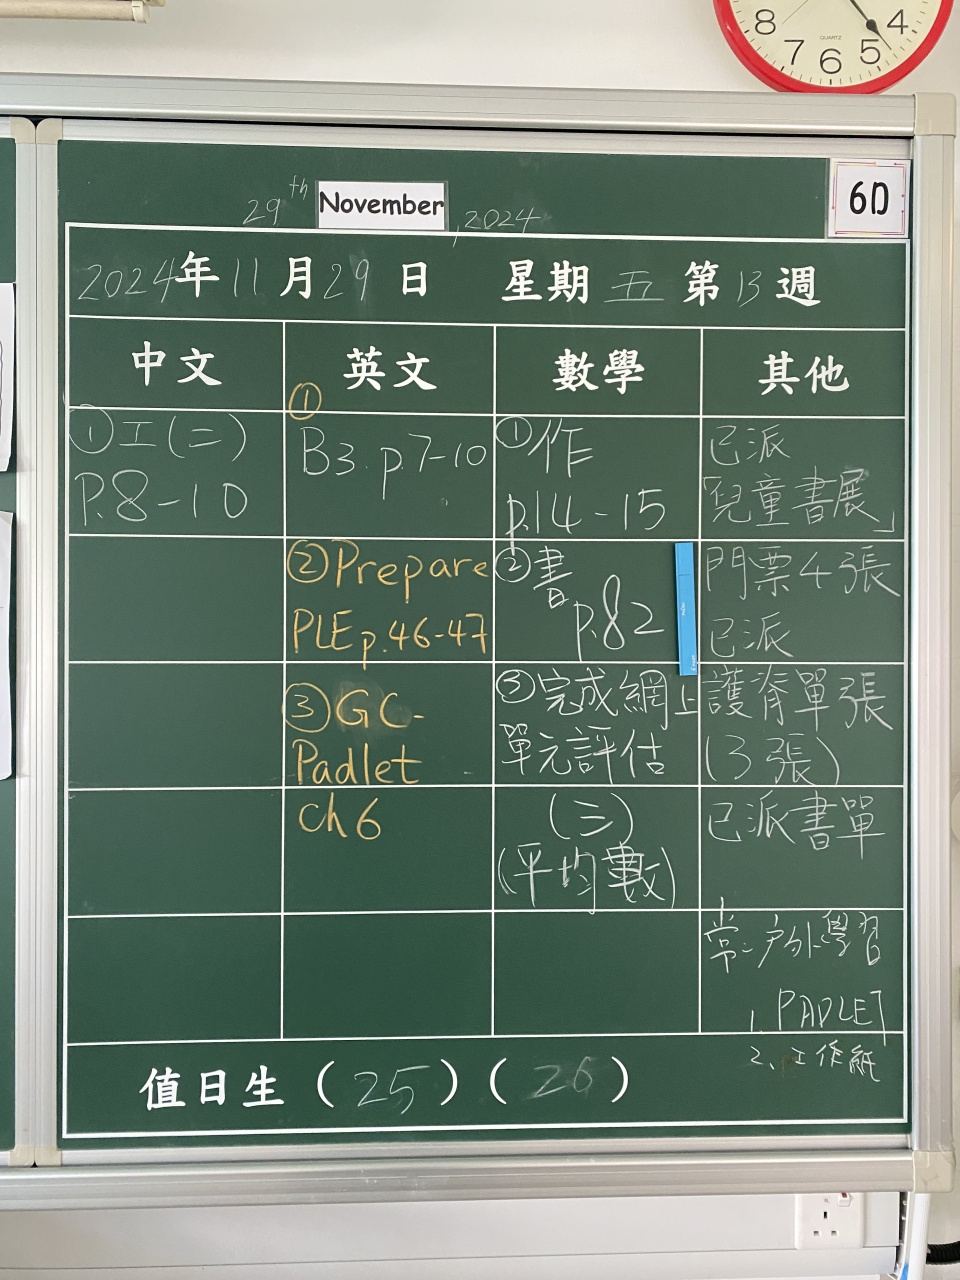 8
7
6
5
4
QUARTZ
29th November, 2024
6D
2024年11月29日 星期五 第13週
中文
英文
數學
其他
①工(二)
P.8-10
①
B3. p.7-10
②Prepare
PLE p.46-47
③GC-
Padlet
Ch 6
①作
p.14-15
②書
p.82
③完成網上
單元評估
(三)
(平均數)
已派
「兒童書展」
門票4張
已派
護脊單張
(3張)
已派書單
常:戶外學習
1. PADLET
2、工作紙
值日生(25)(26)